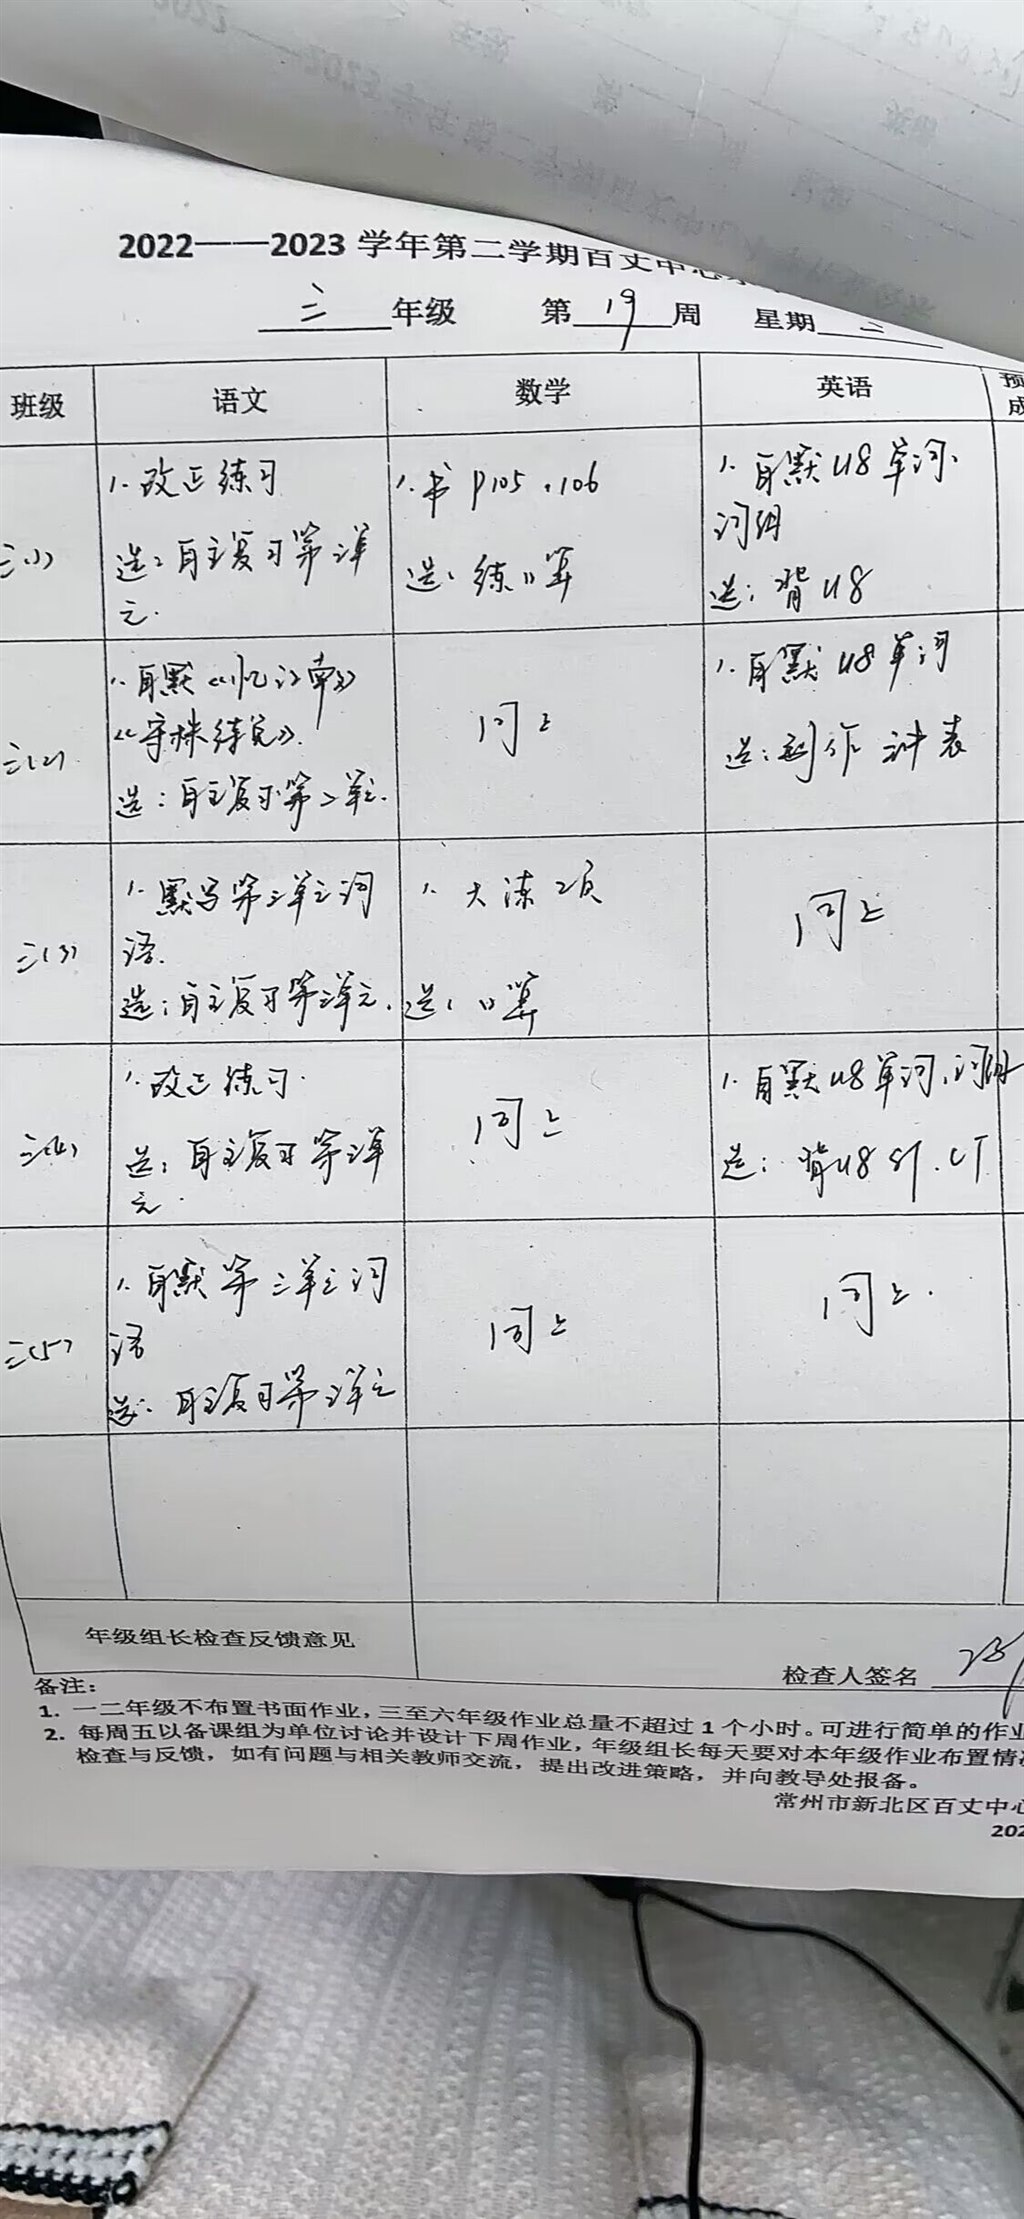 2022——2023 学年第二学期百丈中心
三 年级 第 19 周 星期 二
班级 语文 数学 英语 预
成
三(1)
1. 改正练习
选：自主复习第二单
元.
1. 书 P105、106
选：练口算
1. 自默 U8 单词、
词组
选：背 U8
三(2)
1. 自默《忆江南》
《守株待兔》.
选：自主复习第二单元.
同上
1. 自默 U8 单词
选：制作 钟表
三(3)
1. 默写第二单元词
语.
选：自主复习第二单元.
1. 大练 2页
选：口算
同上
三(4)
1. 改正练习.
选：自主复习第二单
元.
同上
1. 自默 U8 单词、词组
选：背 U8 ST、CT
三(5)
1. 自默 第二单元词
语
选：自主复习第二单元
同上
同上.
年级组长检查反馈意见
检查人签名
备注：
1. 一二年级不布置书面作业，三至六年级作业总量不超过 1 个小时。可进行简单的作业
2. 每周五以备课组为单位讨论并设计下周作业，年级组长每天要对本年级作业布置情况
检查与反馈，如有问题与相关教师交流，提出改进策略，并向教导处报备。
常州市新北区百丈中心
202